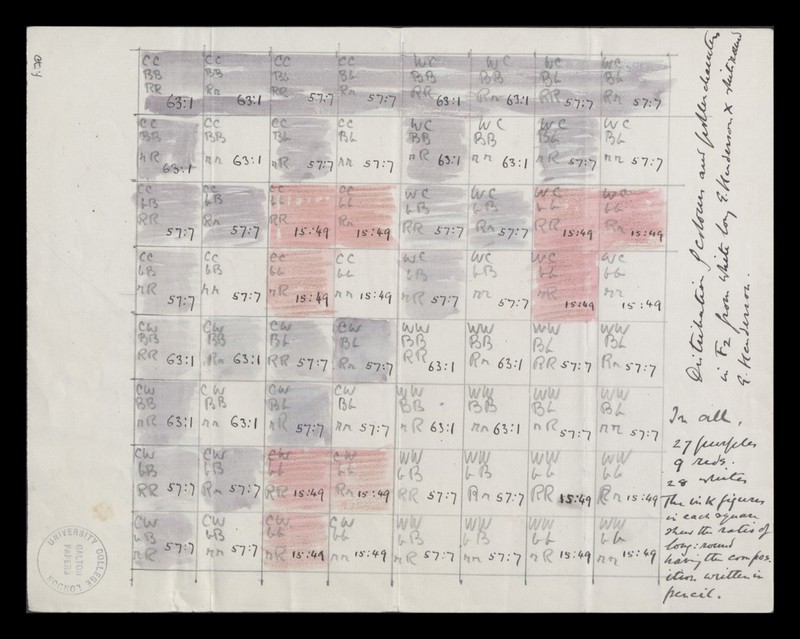 420
CC CC CC CC WC WC WC WC
BB BB Bb Bb BB BB Bb Bb
RR Rr RR Rr RR Rr RR Rr
63:1 63:1 57:7 57:7 63:1 63:1 57:7 57:7
CC CC CC CC WC WC WC WC
BB BB Bb Bb BB BB Bb Bb
rR rr rR rr rR rr rR rr
63:1 63:1 57:7 57:7 63:1 63:1 57:7 57:7
CC CC CC CC WC WC WC WC
bB bB bb bb bB bB bb bb
RR Rr RR Rr RR Rr RR Rr
57:7 57:7 15:49 15:49 57:7 57:7 15:49 15:49
CC CC CC CC WC WC WC WC
bB bB bb bb bB bB bb bb
rR rr rR rr rR rr rR rr
57:7 57:7 15:49 15:49 57:7 57:7 15:49 15:49
CW CW CW CW WW WW WW WW
BB BB Bb Bb BB BB Bb Bb
RR Rr RR Rr RR Rr RR Rr
63:1 63:1 57:7 57:7 63:1 63:1 57:7 57:7
CW CW CW CW WW WW WW WW
BB BB Bb Bb BB BB Bb Bb
rR rr rR rr rR rr rR rr
63:1 63:1 57:7 57:7 63:1 63:1 57:7 57:7
CW CW CW CW WW WW WW WW
bB bB bb bb bB bB bb bb
RR Rr RR Rr RR Rr RR Rr
57:7 57:7 15:49 15:49 57:7 57:7 15:49 15:49
CW CW CW CW WW WW WW WW
bB bB bb bb bB bB bb bb
rR rr rR rr rR rr rR rr
57:7 57:7 15:49 15:49 57:7 57:7 15:49 15:49
Distribution of colours and pollen characters
in F2 from white long E. Henderson x white round
E. Henderson.
In all,
27 purples
9 reds.
28 whites
The ink figures
in each square
shew the ratio of
long : round
having the compos-
ition written in
pencil.
UNIVERSITY COLLEGE
GALTON
PAPERS
LONDON